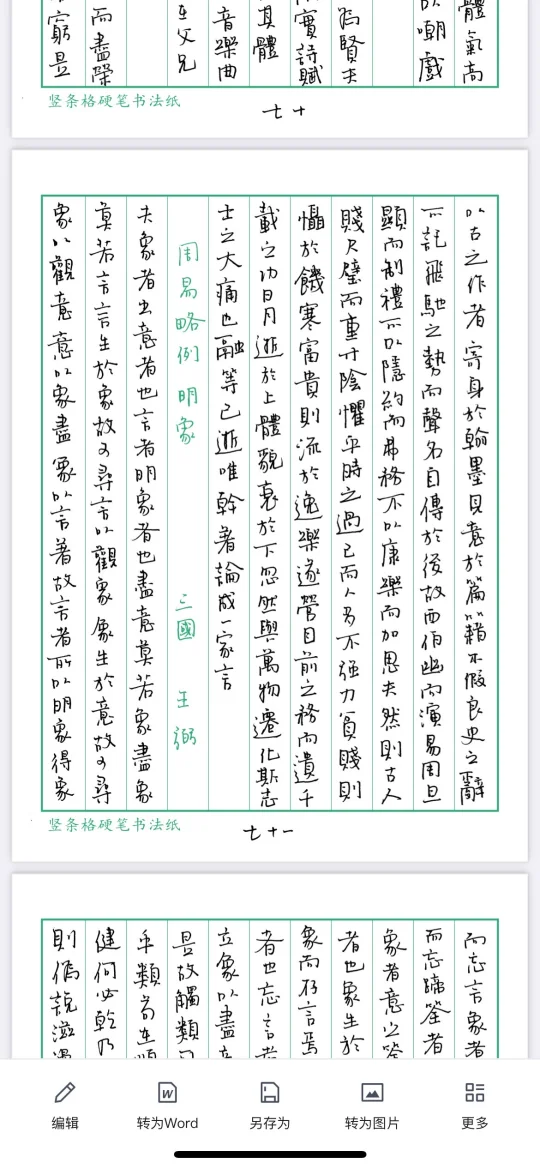 體氣高
以嘲戲
為賢夫
實詩賦
其體
音樂曲
在父兄
而盡榮
窮是
竖条格硬笔书法纸
七十
以古之作者寄身於翰墨見意於篇籍不假良史之辭
不託飛馳之勢而聲名自傳於後故西伯幽而演易周旦
顯而制禮不以隱約而弗務不以康樂而加思夫然則古人
賤尺璧而重寸陰懼乎時之過已而人多不强力貧賤則
懾於饑寒富貴則流於逸樂遂營目前之務而遺千
載之功日月逝於上體貌衰於下忽然與萬物遷化斯志
士之大痛也融等已逝唯幹著論成一家言
周易略例 明象 三國 王弼
夫象者出意者也言者明象者也盡意莫若象盡象
莫若言言生於象故可尋言以觀象象生於意故可尋
象以觀意意以象盡象以言著故言者所以明象得象
竖条格硬笔书法纸
七十一
而忘言象者
而忘蹄筌者
象者意之筌
者也象生於
象而存言焉
者也忘言者
立象以盡意
是故觸類可
乎類苟在順
健何必乾乃
則偽說滋漫
编辑
转为Word
另存为
转为图片
更多